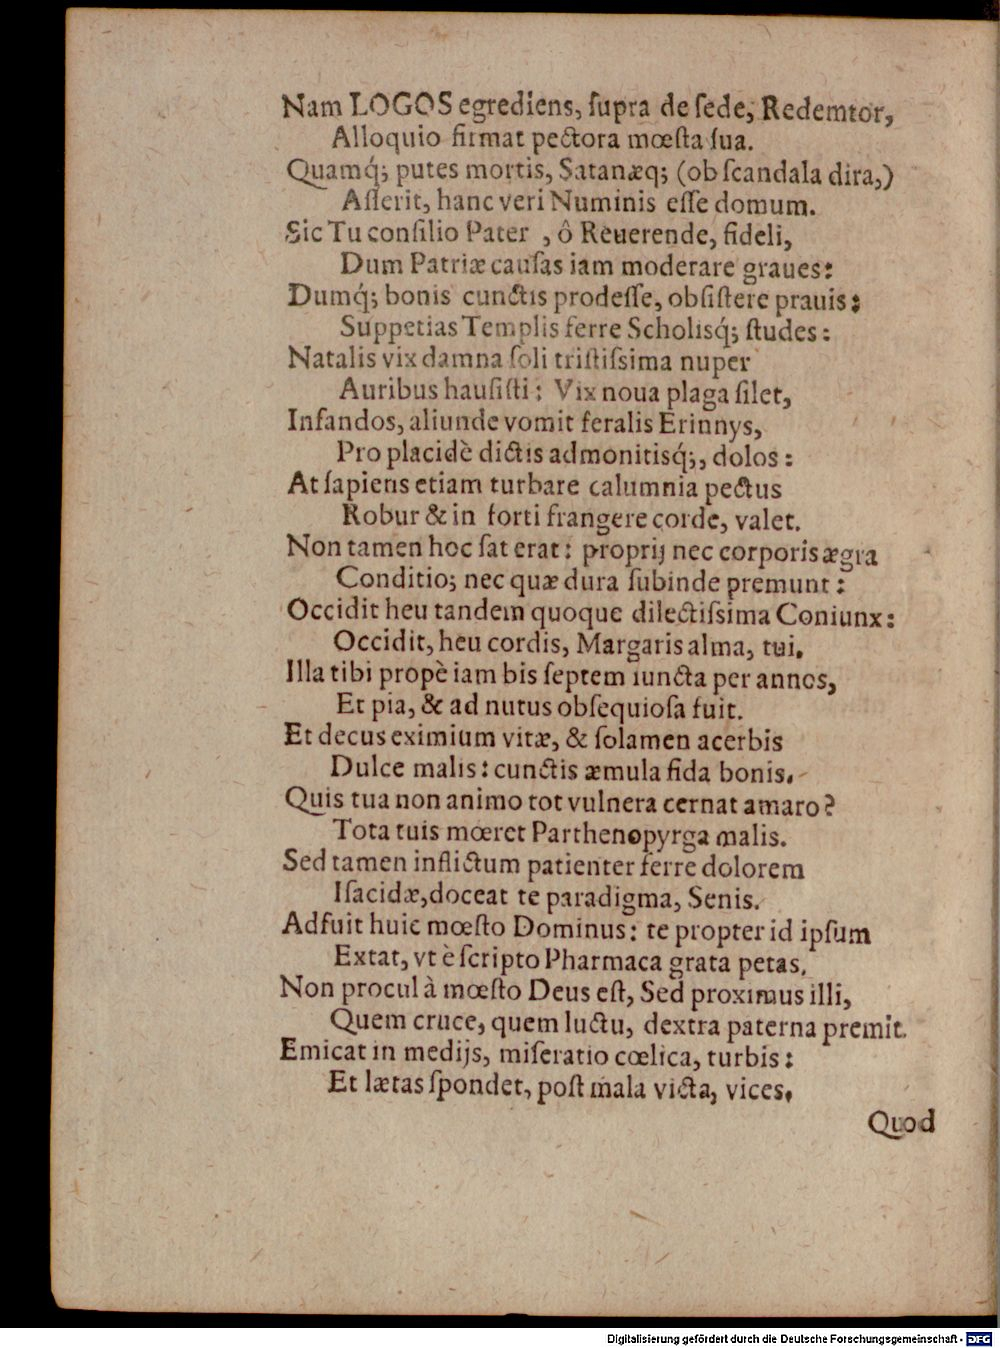 Nam LOGOS egrediens, ſupra de ſede, Redemtor,
Alloquio firmat pectora mœſta ſua.
Quamq́; putes mortis, Satanæq; (ob ſcandala dira,)
Aſſerit, hanc veri Numinis eſſe domum.
Sic Tu conſilio Pater , ô Reuerende, fideli,
Dum Patriæ cauſas iam moderare graues:
Dumq́; bonis cunctis prodeſſe, obſiſtere prauis:
Suppetias Templis ferre Scholisq́; ſtudes:
Natalis vix damna ſoli triſtiſsima nuper
Auribus hauſiſti: Vix noua plaga ſilet,
Infandos, aliunde vomit feralis Erinnys,
Pro placidè dictis admonitisq́;, dolos:
At ſapiens etiam turbare calumnia pectus
Robur & in forti frangere corde, valet.
Non tamen hoc ſat erat: proprij nec corporis ægra
Conditio; nec quæ dura ſubinde premunt:
Occidit heu tandem quoque dilectiſsima Coniunx:
Occidit, heu cordis, Margaris alma, tui.
Illa tibi propè iam bis ſeptem iuncta per annos,
Et pia, & ad nutus obſequioſa fuit.
Et decus eximium vitæ, & ſolamen acerbis
Dulce malis: cunctis æmula fida bonis.
Quis tua non animo tot vulnera cernat amaro?
Tota tuis mœret Parthenopyrga malis.
Sed tamen inflictum patienter ferre dolorem
Iſacidæ, doceat te paradigma, Senis.
Adfuit huic mœſto Dominus: te propter id ipſum
Extat, vt è ſcripto Pharmaca grata petas.
Non procul à mœſto Deus eſt, Sed proximus illi,
Quem cruce, quem luctu, dextra paterna premit.
Emicat in medijs, miſeratio cœlica, turbis:
Et lætas ſpondet, poſt mala victa, vices.
Quod
Digitalisierung gefördert durch die Deutsche Forschungsgemeinschaft - DFG